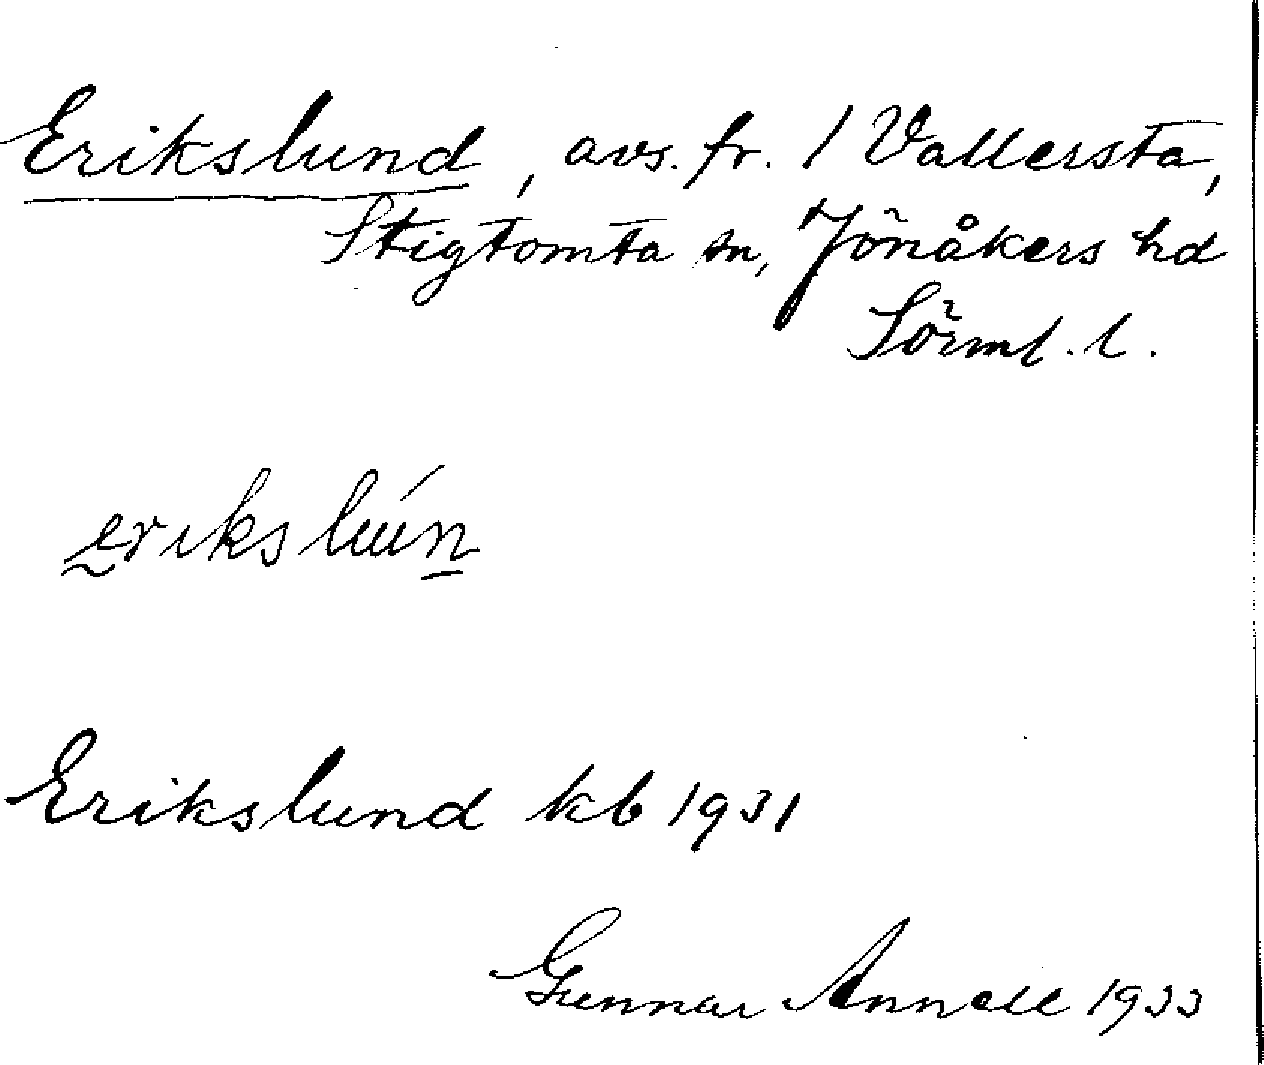 Erikslund, avs. fr. 1 Vallersta,
Stigtomta sn, Jönåkers hd
Sörml. l.
erikslún
Erikslund kb 1931
Gunnar Annell 1933